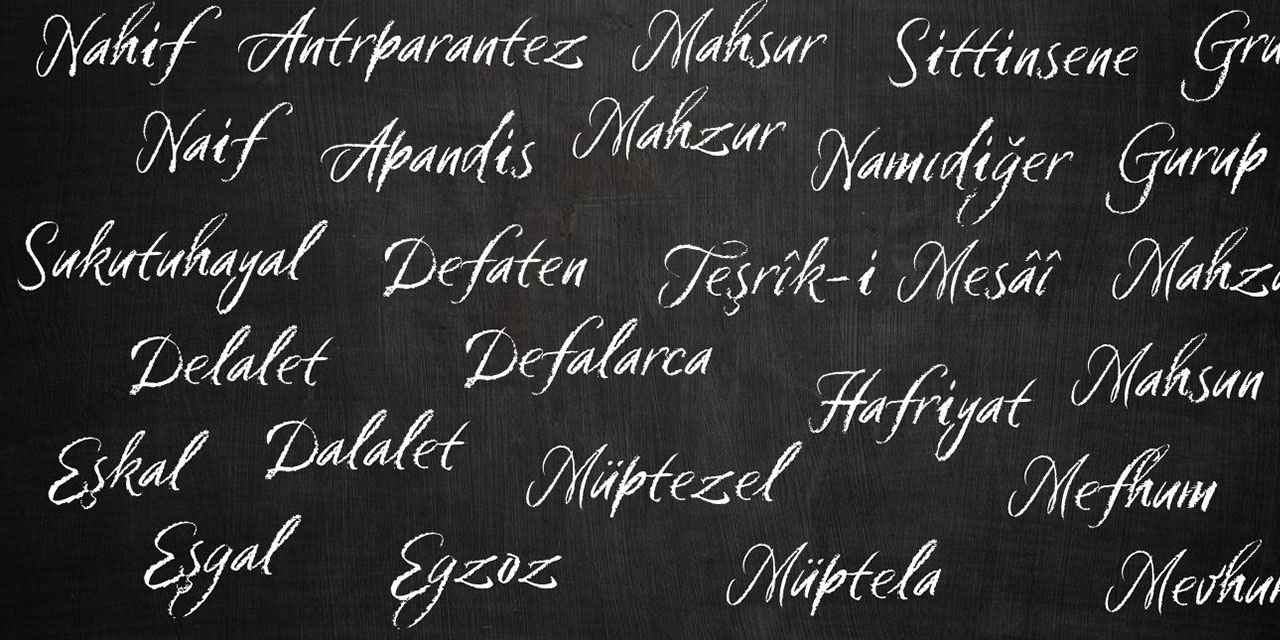 Nahif Antrparantez Mahsur Sittinsene Gru
Naif Apandis Mahzur Namıdiğer Gurup
Sukutuhayal Defaten Teşrîk-i Mesâî Mahzu
Delalet Defalarca Hafriyat Mahsun
Eşkal Dalalet Müptezel Mefhum
Eşgal Egzoz Müptela Mevhum